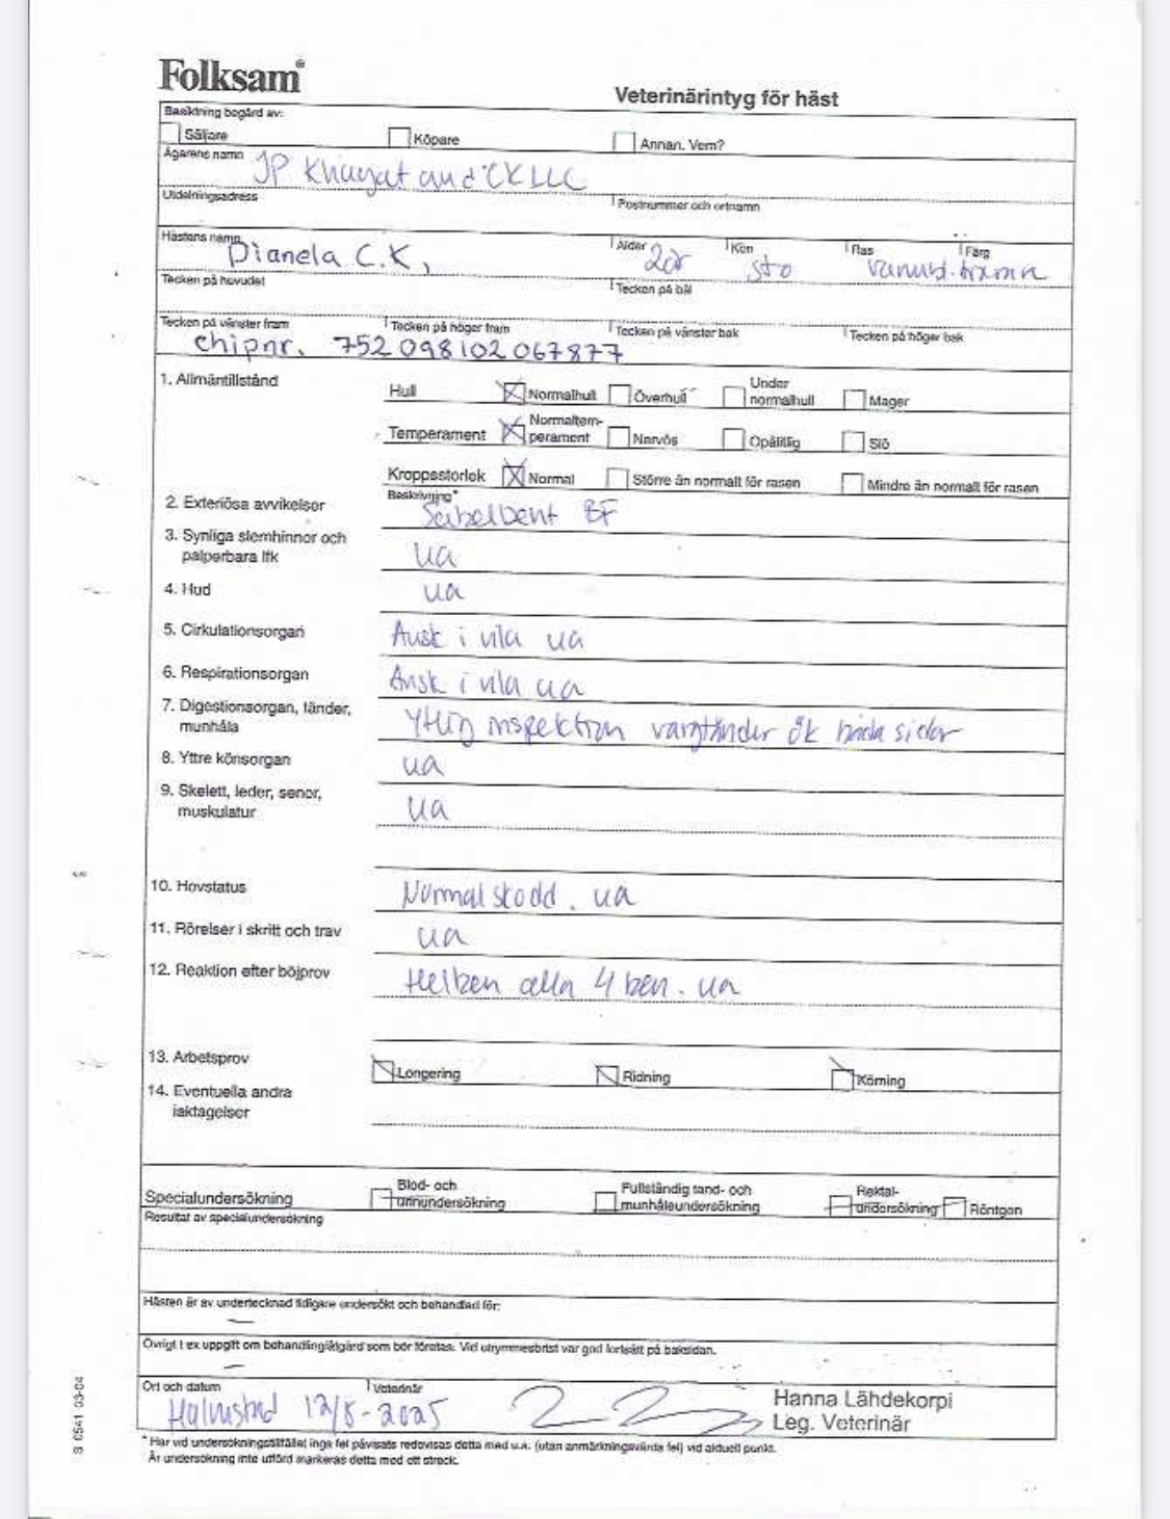 Folksam®
Veterinärintyg för häst
Besiktning begärd av:
Säljare Köpare Annan. Vem?
Ägarens namn JP Khayat and CK LLC
Utdelningsadress Postnummer och ortnamn
Hästens namn Dianela C.K, Ålder 2år Kön sto Ras varmbl. Färg brun
Tecken på huvudet Tecken på bål
Tecken på vänster fram Tecken på höger fram Tecken på vänster bak Tecken på höger bak
chipnr. 752098102067877
1. Allmäntillstånd Hull Normalhull Överhull Under normalhull Mager
Temperament Normaltemperament Nervös Opålitlig Slö
Kroppsstorlek Normal Större än normalt för rasen Mindre än normalt för rasen
Beskrivning*
2. Exteriösa avvikelser Sabelbent BF
3. Synliga slemhinnor och palperbara lfk ua
4. Hud ua
5. Cirkulationsorgan Ausk i vila ua
6. Respirationsorgan Ausk i vila ua
7. Digestionsorgan, tänder, munhåla Ytlig inspektion vargtänder ök båda sidor
8. Yttre könsorgan ua
9. Skelett, leder, senor, muskulatur ua
10. Hovstatus Normal skodd. ua
11. Rörelser i skritt och trav ua
12. Reaktion efter böjprov Helben alla 4 ben. ua
13. Arbetsprov Longering Ridning Körning
14. Eventuella andra iakttagelser
Specialundersökning Blod- och urinundersökning Fullständig tand- och munhåleundersökning Rektal-undersökning Röntgen
Resultat av specialundersökning
Hästen är av undertecknad tidigare undersökt och behandlad för:
–
Övrigt t ex uppgift om behandling/åtgärd som bör företas. Vid utrymmesbrist var god fortsätt på baksidan.
–
Ort och datum Veterinär
Halmstad 12/8-2025 Hanna Lähdekorpi
Leg. Veterinär
* Har vid undersökningstillfället inga fel påvisats redovisas detta med u.a. (utan anmärkningsvärda fel) vid aktuell punkt.
Är undersökning inte utförd markeras detta med ett streck.
S 0541 03-04